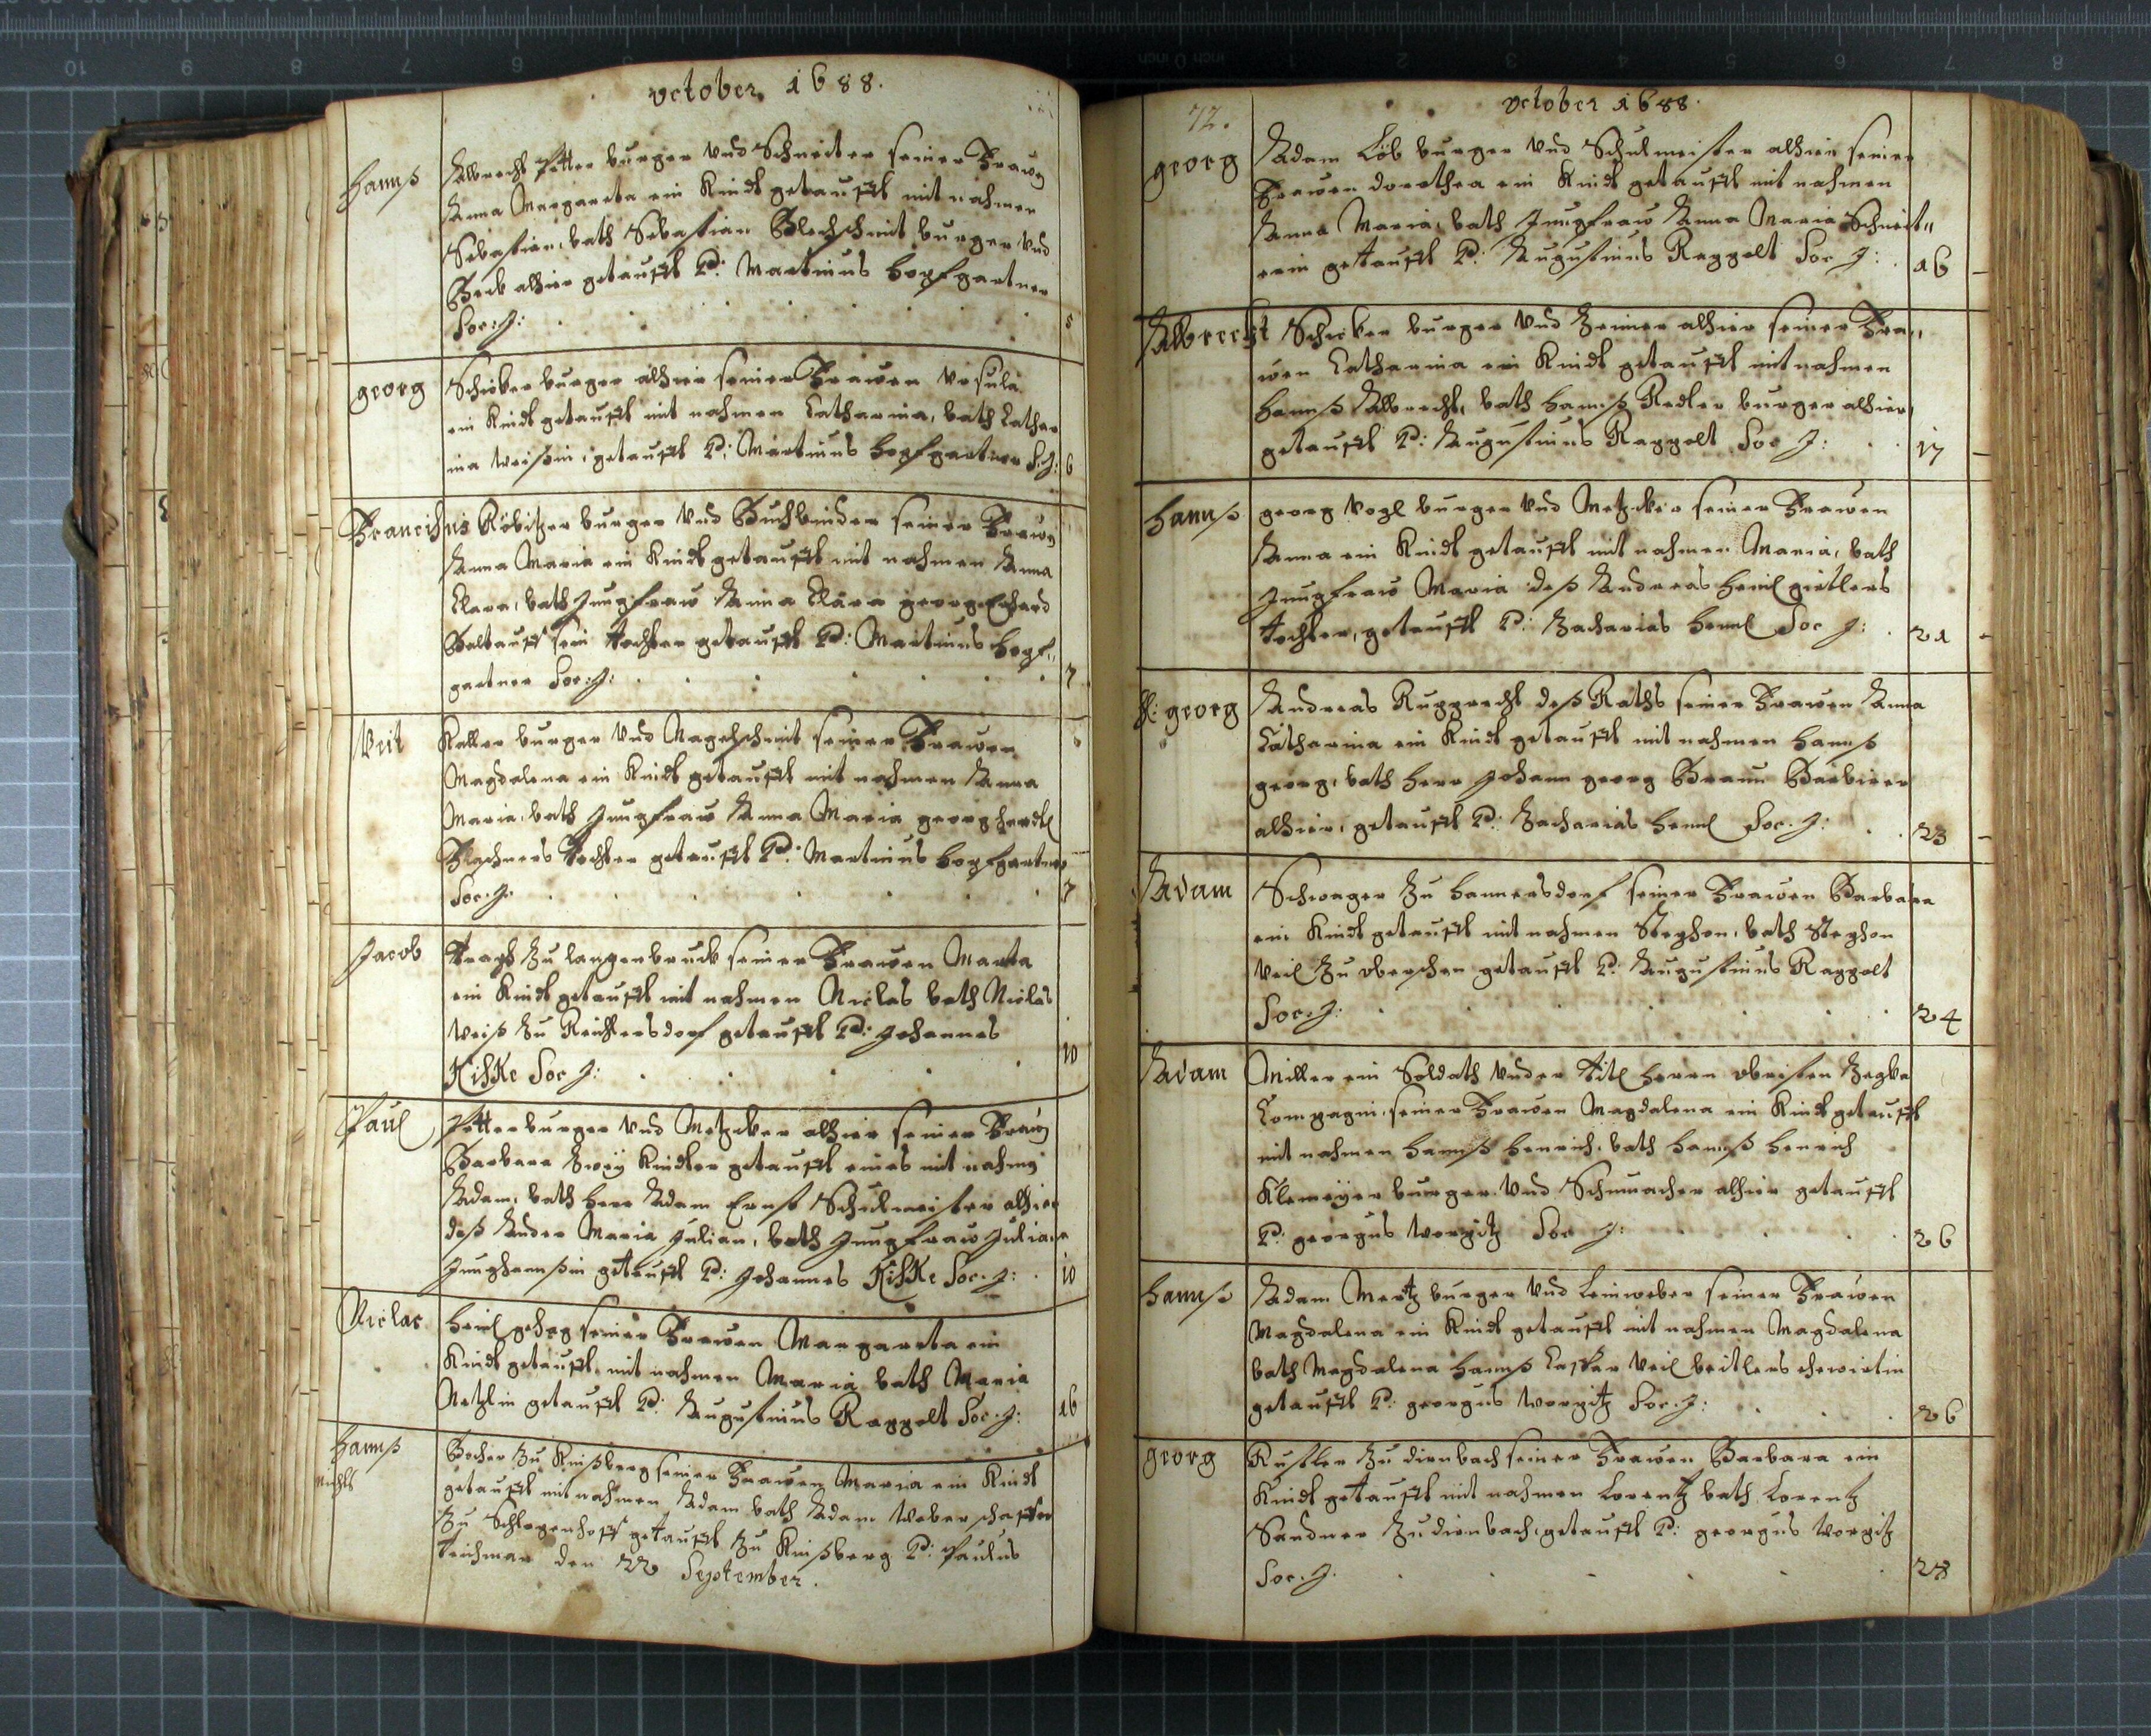 october 1688.
Hannß Albrecht Petter burger Vnd Schneiter seiner Frawen
Anna Margareta ein Kindt getaufft mit nahmen
Sebastian, bath Sebastian Blechschmit burger Vnd
Beck alhier getaufft P: Martinus Hopfgartner
Soc: J: 5
georg Schicker burger alhier seiner Frawen Vrsula
ein Kindt getaufft mit nahmen Catharina, bath Cathar
ina Weißin, getaufft P: Martinus Hopfgartner S: J: 6
Francißcus burger Vnd Buchbinder seiner Frawen
Anna Maria ein Kindt getaufft mit nahmen Anna
Clara, bath Jungfraw Anna Clara georg Erhard
sein tochter getaufft P: Martinus Hopf„
gartner Soc: J: 7
Veit Kaller burger Vnd Nagelschmit seiner Frawen
Magdalena ein Kindt getaufft mit nahmen Anna
Maria, bath Jungfraw Anna Maria georg
tochter getaufft P: Martinus Hopfgartner
Soc. J. 7
Jacob zu langenbruck seiner Frawen Marta
ein Kindt getaufft mit nahmen Niclas bath Niclas
Weiß zu getaufft P: Johannes
Kiske Soc J: 10
Paul Petter burger Vnd Metzcker alhier seiner Frawen
Barbara Zweÿ Kindter getaufft eines mit nahmen
Adam, bath Herr Adam Ernst Schulmeister alhier
daß Ander Maria Julian, bath Jungfraw Juliana
Junghanßin getaufft P: Johannes Kiske Soc. J: 10
Niclas seiner Frawen Margareta ein
Kindt getaufft mit nahmen Maria bath Maria
getaufft P: Augustinus Rappolt Soc. J: 16
Hannß zu Knißberg seiner Frawen Maria ein Kindt
nichts getaufft mit nahmen Adam bath Adam Weber
zu Schlogenhoff getaufft zu Knißberg P: Paulus
Teichman den 22 September.
72.
october 1688.
georg Adam Löb burger Vnd Schulmeister alhier seiner
Frawen dorothea ein Kindt getaufft mit nahmen
Anna Maria, bath Jungfraw Anna Maria Schneit„
erin getaufft P: Augustinus Rappolt Soc J: 16
Albrecht Schicker burger Vnd alhier seiner Fra„
wen Catharina ein Kindt getaufft mit nahmen
Hannß Albrecht, bath Hannß Redler burger alhier,
getaufft P: Augustinus Rappolt Soc J: 17
Hannß georg Vogl burger Vnd Metzcker seiner Frawen
Anna ein Kindt getaufft mit nahmen Maria, bath
Jungfraw Maria deß Andreas
tochter, getaufft P: Zacharias Heinl Soc J: 21
H: georg Andreas Rupprecht deß Raths seiner Frawen Anna
Catharina ein Kindt getaufft mit nahmen Hannß
georg, bath Herr Johann georg Braun Barbirer
alhier, getaufft P: Zacharias Heinl Soc. J: 23
Adam Schwager zu Hannersdorf seiner Frawen Barbara
ein Kindt getaufft mit nahmen Stephan, bath Stephan
Veil zu getaufft P: Augustinus Rappolt
Soc. J: 24
Adam Miller ein Soldath Vnder titl Herrn obristen
Compagni, seiner Frawen Magdalena ein Kindt getaufft
mit nahmen Hannß Henrich, bath Hannß Henrich
Klemeÿer burger Vnd Schumacher alhier getaufft
P: georgus Worzitz Soc J: 26
Hannß Adam Mertz burger Vnd Leinweber seiner Frawen
Magdalena ein Kindt getaufft mit nahmen Magdalena
bath Magdalena Hannß Caspar Veil beitlers ehewirtin
getaufft P: georgus Worzitz Soc. J: 26
georg Rustler zu dirnbach seiner Frawen Barbara ein
Kindt getaufft mit nahmen Lorentz bath Lorentz
Sandner zu dirnbach, getaufft P: georgus Worzitz
Soc. J. 28